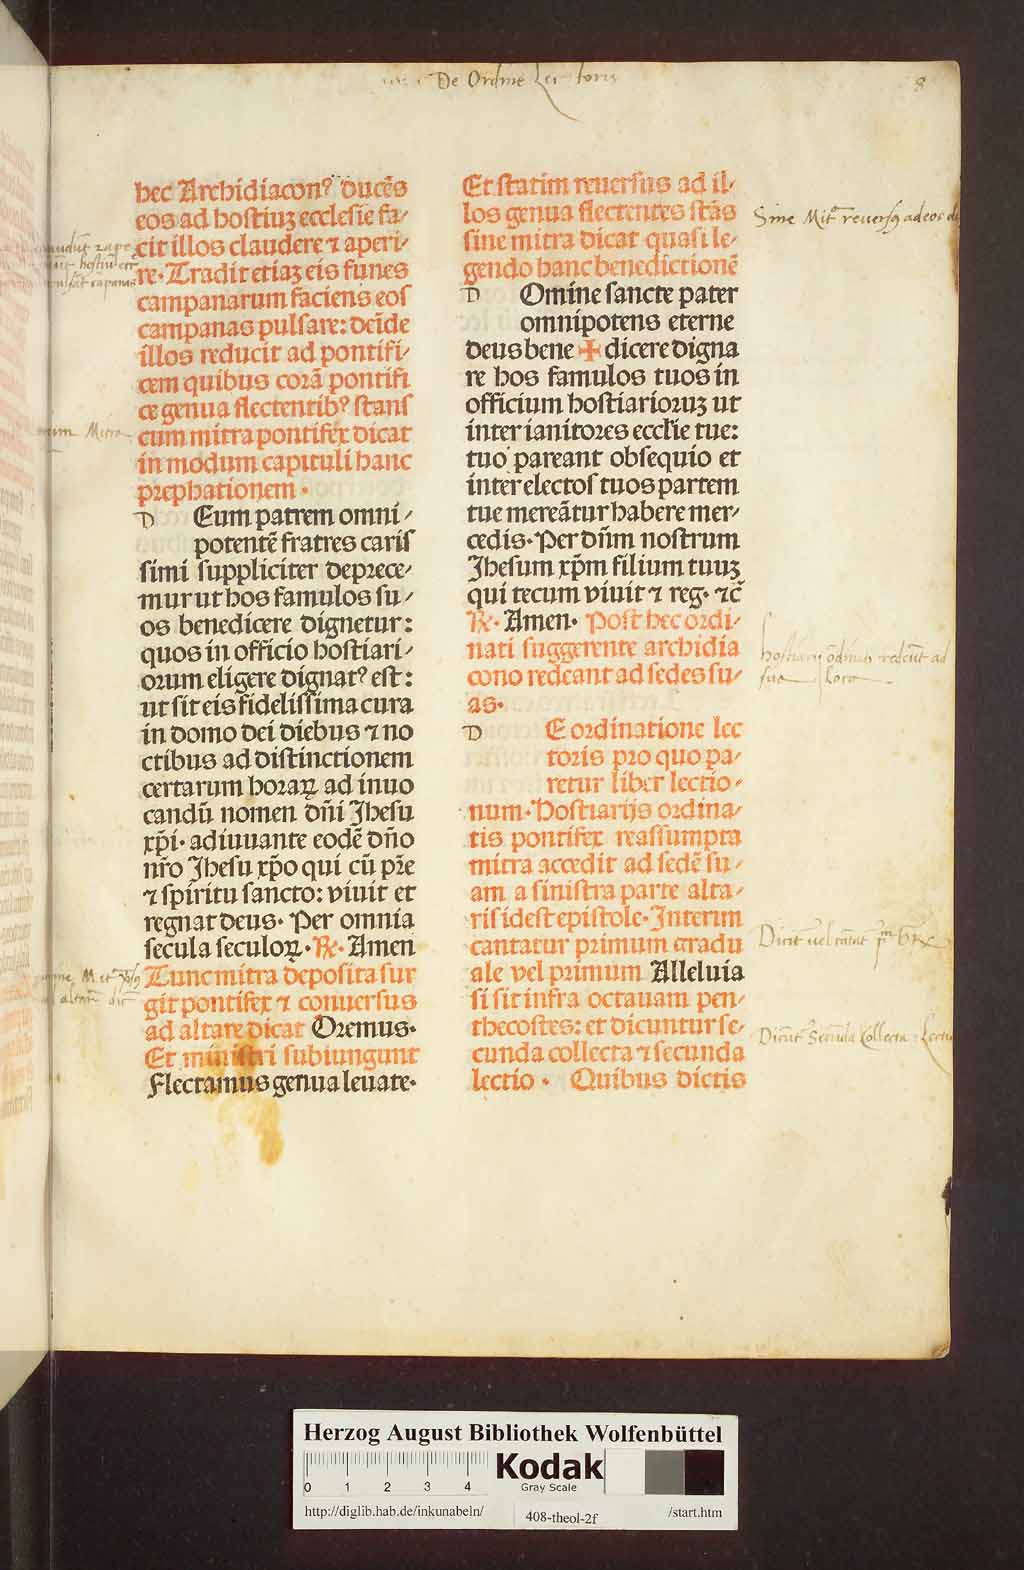 De Ordine Lectoris
8
hec Archidiacon⁹ ducẽs
eos ad hostiuꝫ ecclesie fa⸗
cit illos claudere ⁊ aperi⸗
re· Tradit etiaꝫ eis funes
campanarum faciens eos
campanas pulsare: deĩde
illos reducit ad pontifi⸗
cem quibus corã pontifi
ce genua flectentib⁹ stans
cum mitra pontifex dicat
in modum capituli hanc
prephationem·
D Eum patrem omni⸗
potentẽ fratres caris
simi suppliciter deprece⸗
mur ut hos famulos su⸗
os benedicere dignetur:
quos in officio hostiari⸗
orum eligere dignat⁹ est:
ut sit eis fidelissima cura
in domo dei diebus ⁊ no
ctibus ad distinctionem
certarum horaꝝ ad inuo
candũ nomen dñi Jhesu
xp̃i· adiuuante eodẽ dño
nr̃o Jhesu xp̃o qui cũ pr̃e
⁊ spiritu sancto: viuit et
regnat deus· Per omnia
secula seculoꝝ· ℞· Amen
Tunc mitra deposita sur
git pontifex ⁊ conuersus
ad altare dicat Oremus·
Et ministri subiungunt
Flectamus genua leuate·
Et statim reuersus ad il⸗
los genua flectentes stãs
sine mitra dicat quasi le⸗
gendo hanc benedictionẽ
D Omine sancte pater
omnipotens eterne
deus bene ✠ dicere digna
re hos famulos tuos in
officium hostiarioruꝫ ut
inter ianitores eccl̃ie tue:
tuo pareant obsequio et
inter electos tuos partem
tue mereãtur habere mer⸗
cedis· Per dñm nostrum
Jhesum xp̃m filium tuuꝫ
qui tecum viuit ⁊ reg· ⁊c̃
℞· Amen· Post hec ordi⸗
nati suggerente archidia
cono redeant ad sedes su⸗
as·
D E ordinatione lec
toris pro quo pa⸗
retur liber lectio⸗
num· Hostiarijs ordina⸗
tis pontifex reassumpta
mitra accedit ad sedẽ su⸗
am a sinistra parte alta⸗
ris idest epistole· Interim
cantatur primum gradu
ale vel primum Alleluia
si sit infra octauam pen⸗
thecostes: et dicuntur se⸗
cunda collecta ⁊ secunda
lectio· Quibus dictis
Sine Mitᵃ reuersꝰ ad eos
hostiarij ordinati redeũt ad
sua loca
Dicũt Secunda Collecta
Herzog August Bibliothek Wolfenbüttel
0 1 2 3 4
Kodak
Gray Scale
http://diglib.hab.de/inkunabeln/ 408-theol-2f /start.htm